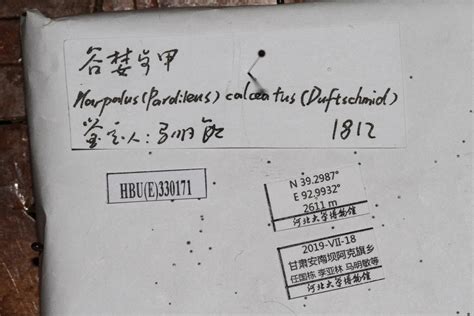 谷婪步甲
Harpalus (Pardileus) calceatus (Duftschmid)
鉴定人：
1812
HBU(E)330171
N 39.2987°
E 92.9932°
2611 m
河北大学博物馆
2019-VII-18
甘肃安南坝阿克旗乡
任国栋 李亚林 马明敏等
河北大学博物馆